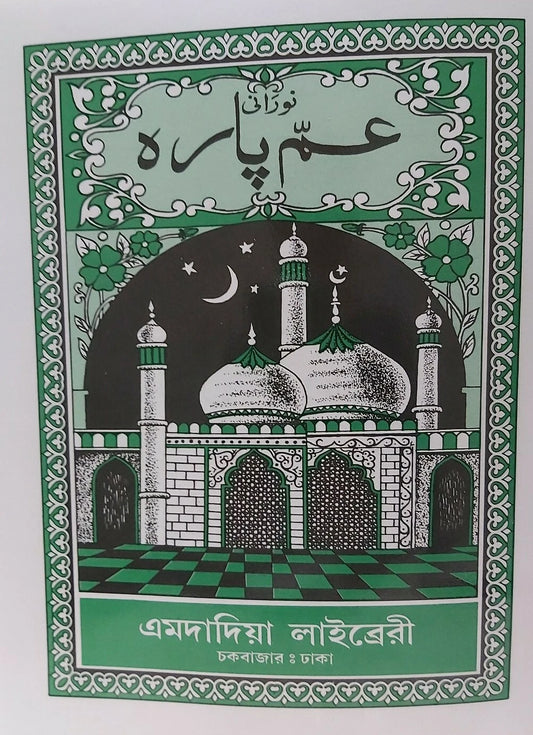 نورانی
عمّ پارہ
এমদাদিয়া লাইব্রেরী
চকবাজার ঃ ঢাকা